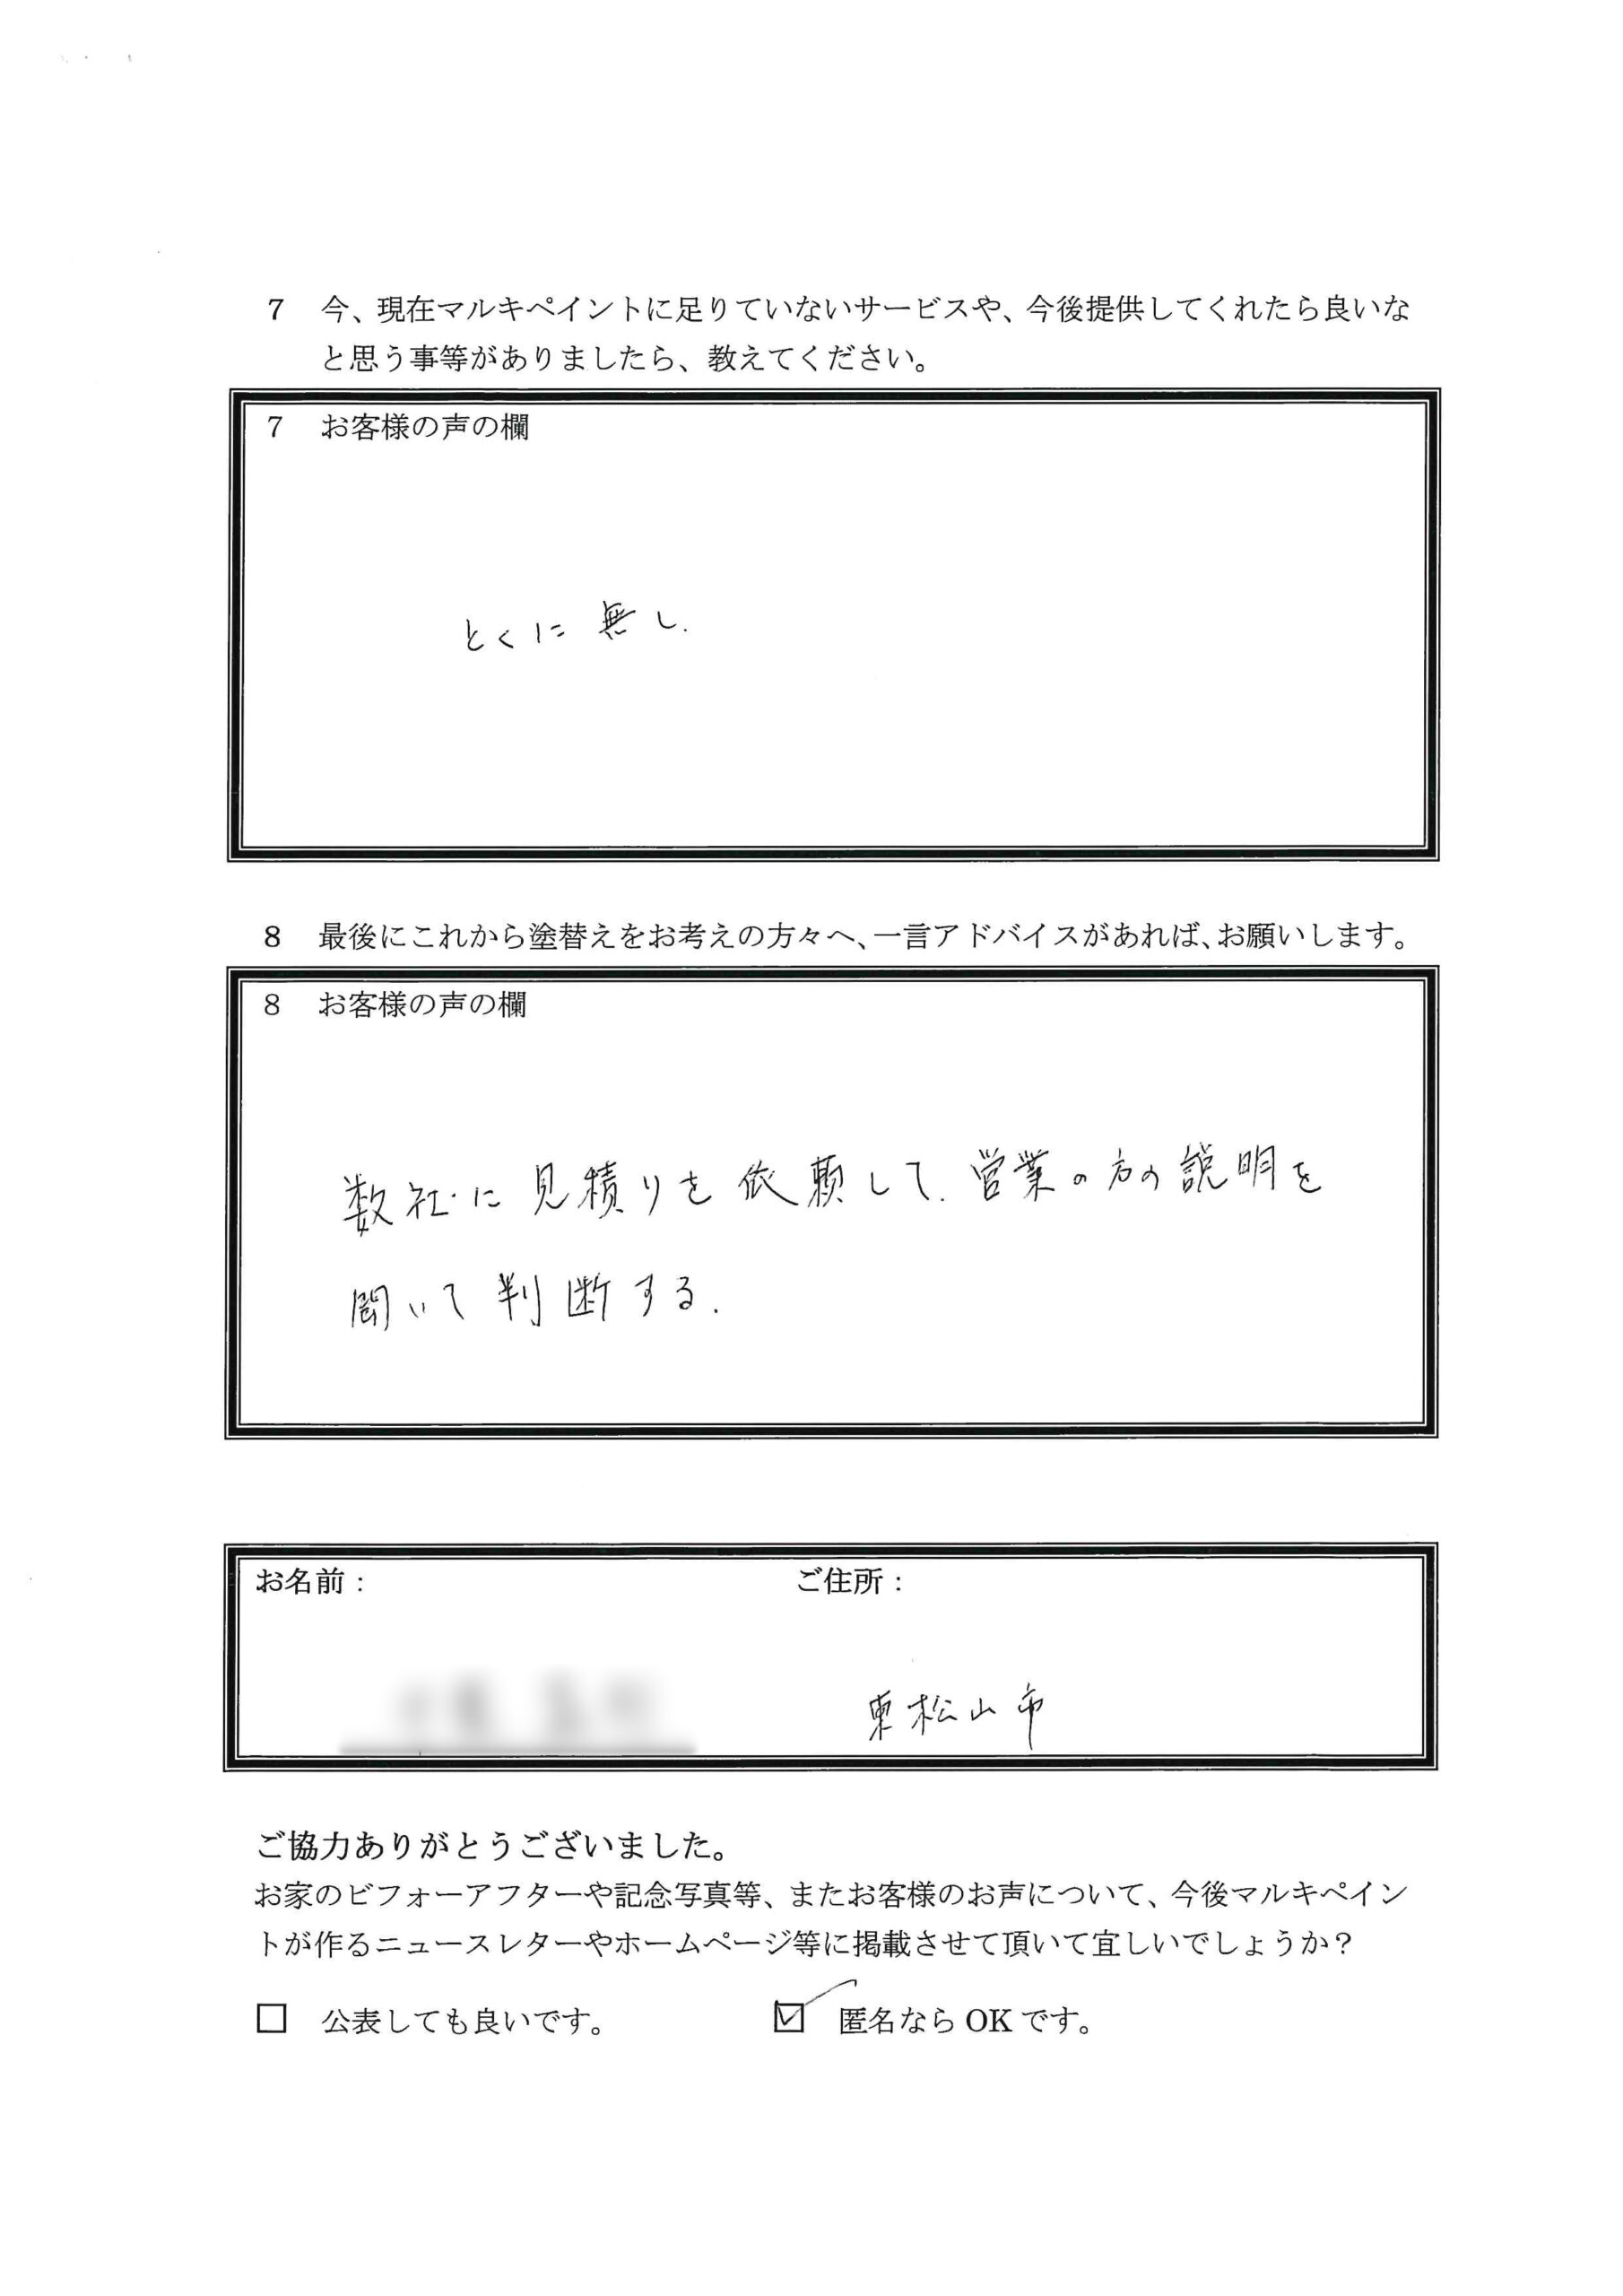 7 今、現在マルキペイントに足りていないサービスや、今後提供してくれたら良いな
と思う事等がありましたら、教えてください。
7 お客様の声の欄
とくに無し.
8 最後にこれから塗替えをお考えの方々へ、一言アドバイスがあれば、お願いします。
8 お客様の声の欄
数社に見積りを依頼して、営業の方の説明を
聞いて判断する.
お名前： ご住所：
東松山市
ご協力ありがとうございました。
お家のビフォーアフターや記念写真等、またお客様のお声について、今後マルキペイン
トが作るニュースレターやホームページ等に掲載させて頂いて宜しいでしょうか？
□ 公表しても良いです。 ☑ 匿名なら OK です。